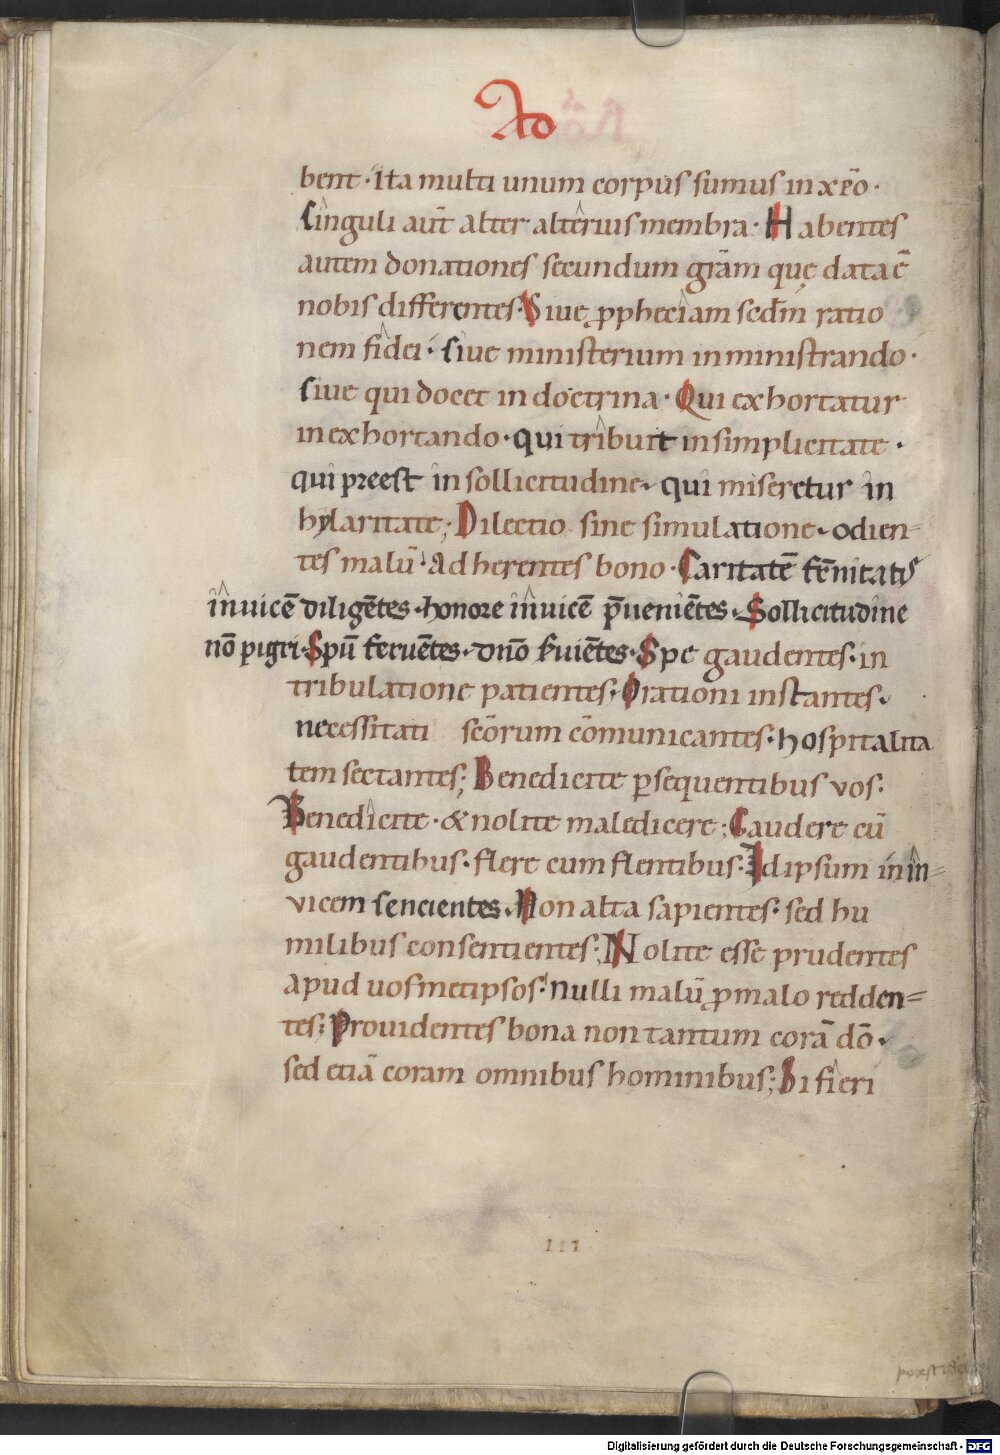 Ad
bent · Ita multi unum corpus sumus in xp̄o ·
Singuli aut̄ alter alterius membra · Habentes
autem donationes secundum grām que data ē
nobis differentes · Siue ꝓphetiam sedm̄ ratio
nem fidei · Siue ministerium in ministrando ·
Siue qui docet in doctrina · Qui exhortatur
in exhortando · qui tribuit in simplicitate ·
qui preest in sollicitudine · qui miseretur in
hylaritate; Dilectio sine simulatione · odien-
tes malū · Adherentes bono · Caritatē fr̄nitatis
inuicē diligētes · honore inuicē p̄ueniētes · Sollicitudine
nō pigri · Spū feruētes · dnō s̄uiētes · Spe gaudentes · in
tribulatione patientes · Orationi instantes ·
necessitati scōrum cōmunicantes · hospitalita
tem sectantes; Benedicite ꝑsequentibus vos ·
Benedicite · & nolite maledicere; Gaudere cū
gaudentibus · flere cum flentibus · Id ipsum in in-
vicem sencientes · Non alta sapientes · sed hu
milibus consentientes; Nolite esse prudentes
apud uosmetipsos · nulli malū ꝓ malo redden-
tes; Prouidentes bona non tantum corā dō ·
sed etiā coram omnibus hominibus; Si fieri
117
Digitalisierung gefördert durch die Deutsche Forschungsgemeinschaft - DFG